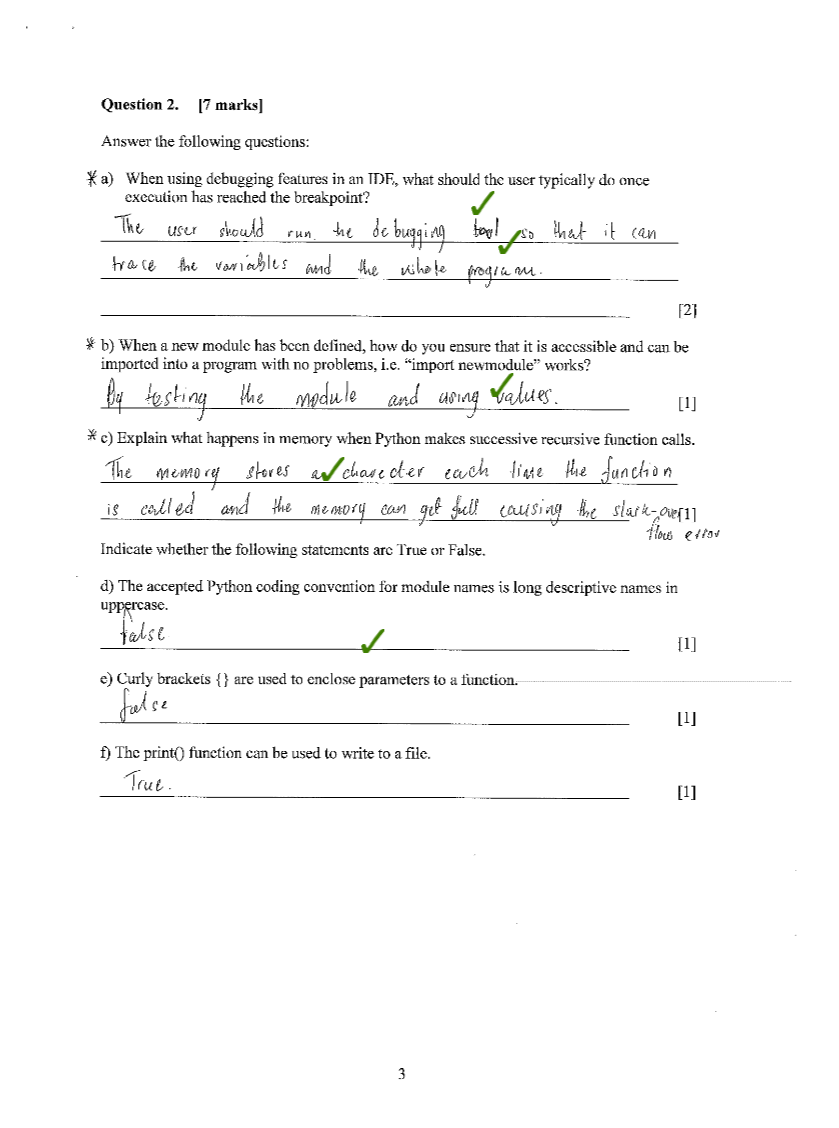 Question 2. [7 marks]
Answer the following questions:
* a) When using debugging features in an IDE, what should the user typically do once
execution has reached the breakpoint?
The user should run the debugging tool so that it can
trace the variables and the whole program.
[2]
* b) When a new module has been defined, how do you ensure that it is accessible and can be
imported into a program with no problems, i.e. “import newmodule” works?
By testing the module and using values.
[1]
* c) Explain what happens in memory when Python makes successive recursive function calls.
The memory stores a charecter each time the function
is called and the memory can get full causing the stack-over [1]
flow error
Indicate whether the following statements are True or False.
d) The accepted Python coding convention for module names is long descriptive names in
uppercase.
false
[1]
e) Curly brackets {} are used to enclose parameters to a function.
false
[1]
f) The print() function can be used to write to a file.
True.
[1]
3